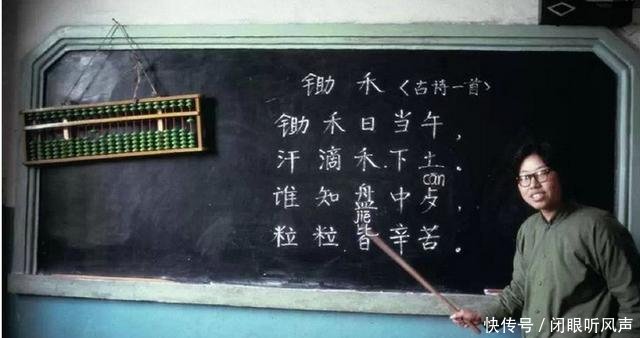 锄禾〈古诗一首〉
锄禾日当午,
汗滴禾下土。
can
谁知盘中歺,
粒粒皆辛苦。
快传号/闭眼听风声